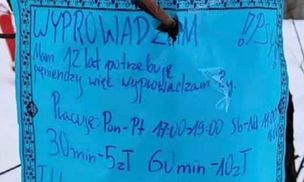 WYPROWADZAM
Mam 12 lat potrzebuję
pieniendzy więc wyprowadzam
Pracuję: Pon-Pt 17:00-19:00 Sb-Nd
30min-5zł 60min-10zł